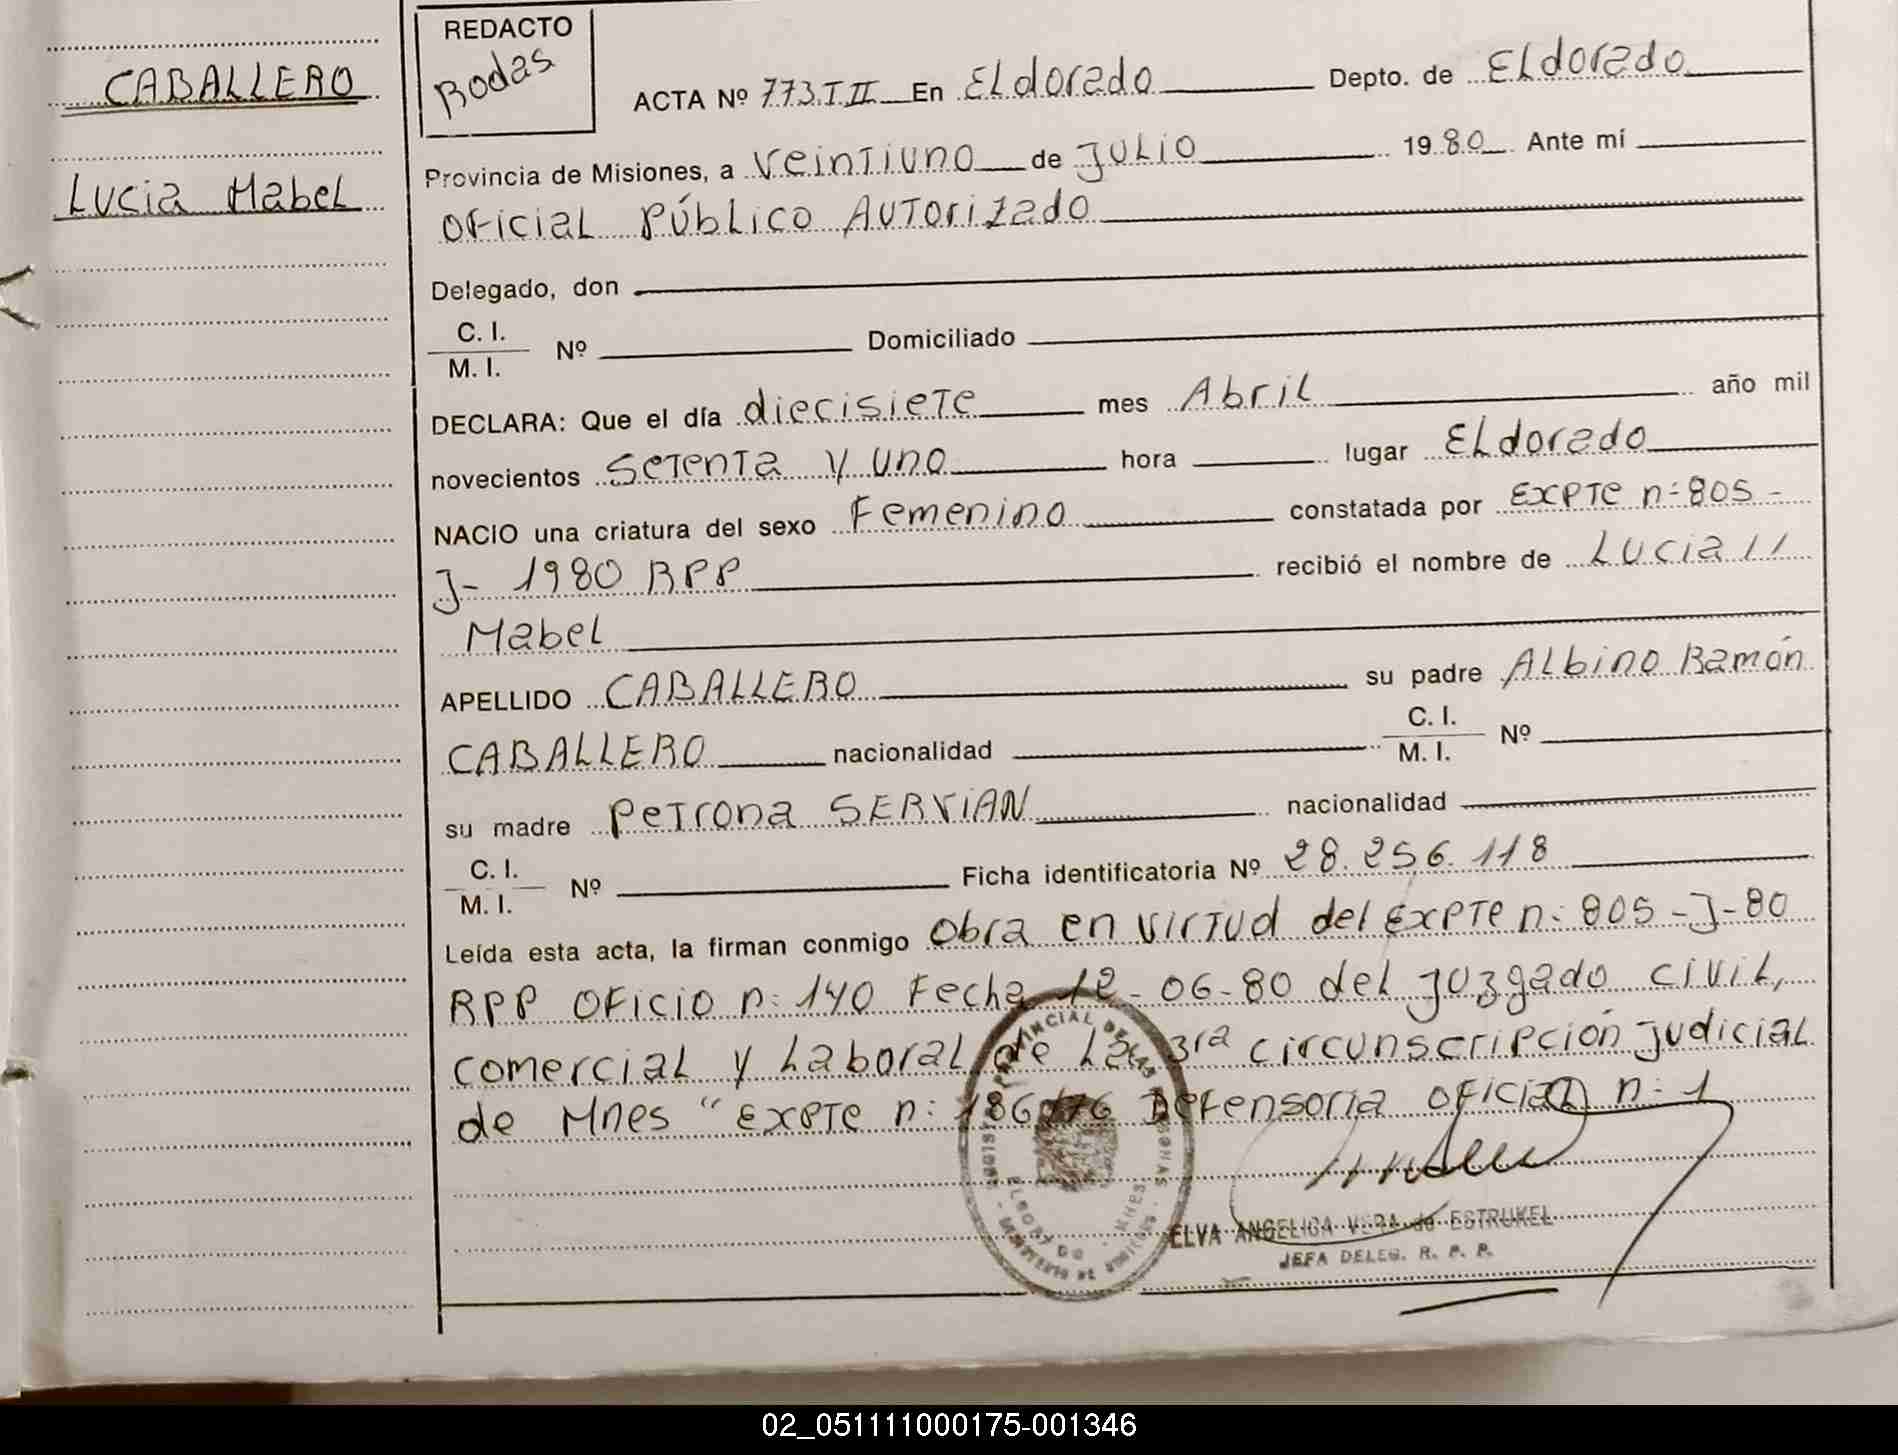 CABALLERO
Lucia Mabel
REDACTO
Rodas
ACTA Nº 773 T II En Eldorado Depto. de Eldorado
Provincia de Misiones, a veintiuno de Julio 1980 Ante mí
Oficial Público Autorizado
Delegado, don
C. I.
M. I. Nº Domiciliado
DECLARA: Que el día diecisiete mes Abril año mil
novecientos setenta y uno hora lugar Eldorado
NACIO una criatura del sexo Femenino constatada por Expte n: 805 -
J- 1980 RPP recibió el nombre de Lucia //
Mabel
APELLIDO CABALLERO su padre Albino Ramón
CABALLERO nacionalidad C. I.
M. I. Nº
su madre Petrona SERVIAN nacionalidad
C. I.
M. I. Nº Ficha identificatoria Nº 28.256.118
Leída esta acta, la firman conmigo Obra en virtud del Expte n: 805 - J - 80
RPP Oficio n: 140 Fecha 12 - 06 - 80 del Juzgado civil,
comercial y Laboral de La 3ra circunscripción Judicial
de Mnes " Expte n: 186/76 Defensoria oficial n: 1
REGISTRO PROVINCIAL DE LAS PERSONAS
ELDORADO - MNES
ELVA ANGELICA VERA de ESTRUKEL
JEFA DELEG. R. P. P.
02_051111000175-001346